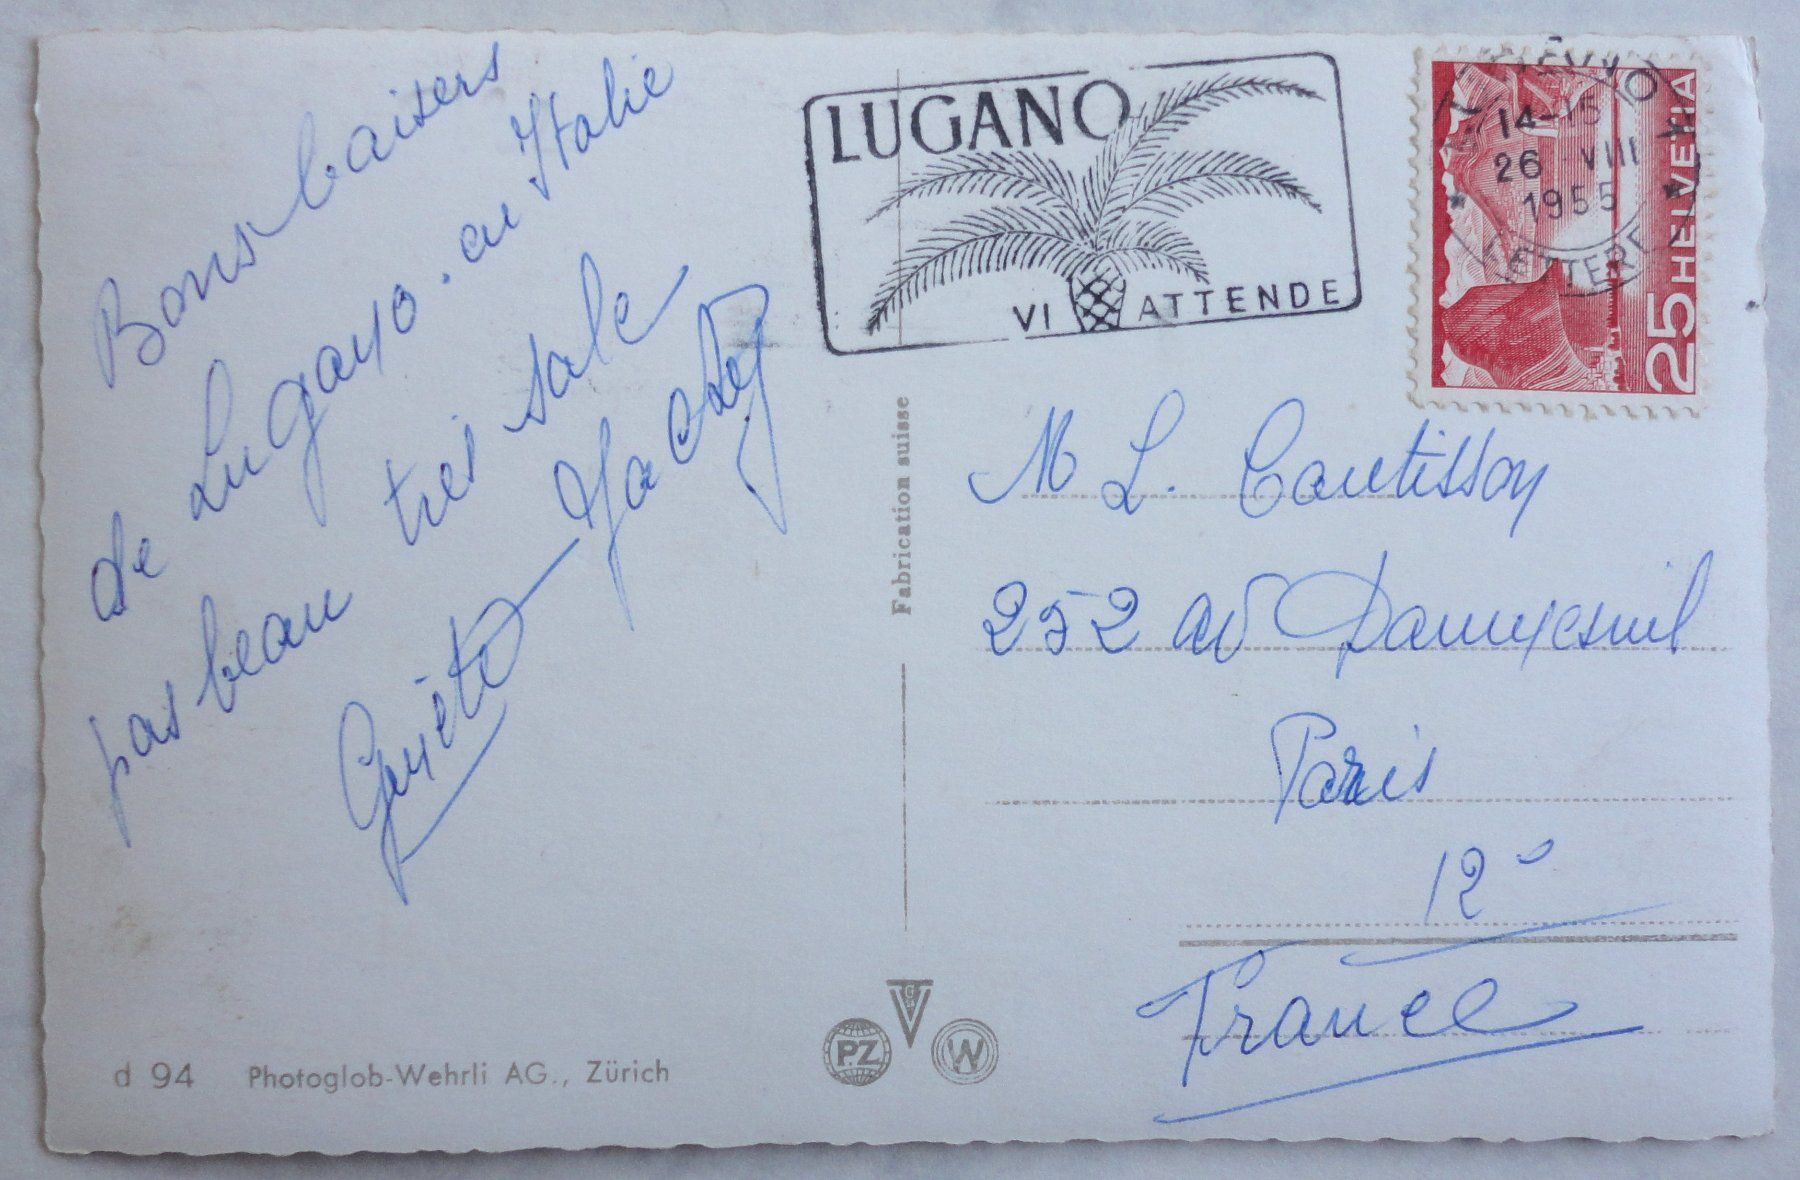 Bons baisers
de Lugano. en Italie
pas beau très sale
LUGANO
VI ATTENDE
14-15
26 VIII
1955
LETTERE
HELVETIA
25
Fabrication suisse
M L.
252 av Daumesnil
Paris
12e
France
d 94 Photoglob-Wehrli AG., Zürich
PZ
W